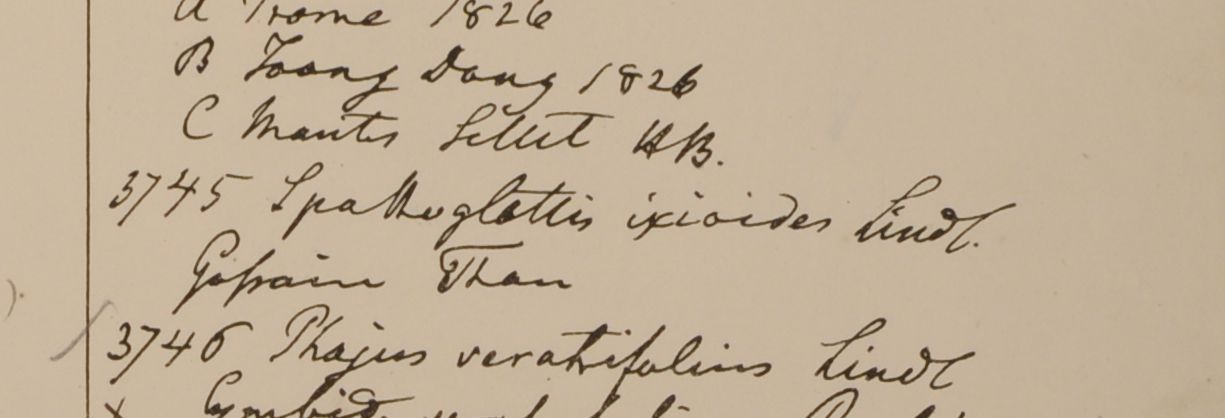 A Prome 1826
B Toong Dong 1826
C Montes Sillet HB.
3745 Spathoglottis ixioides Lindl.
Goſsain Than
3746 Phajus veratrifolius Lindl
Cymbid.